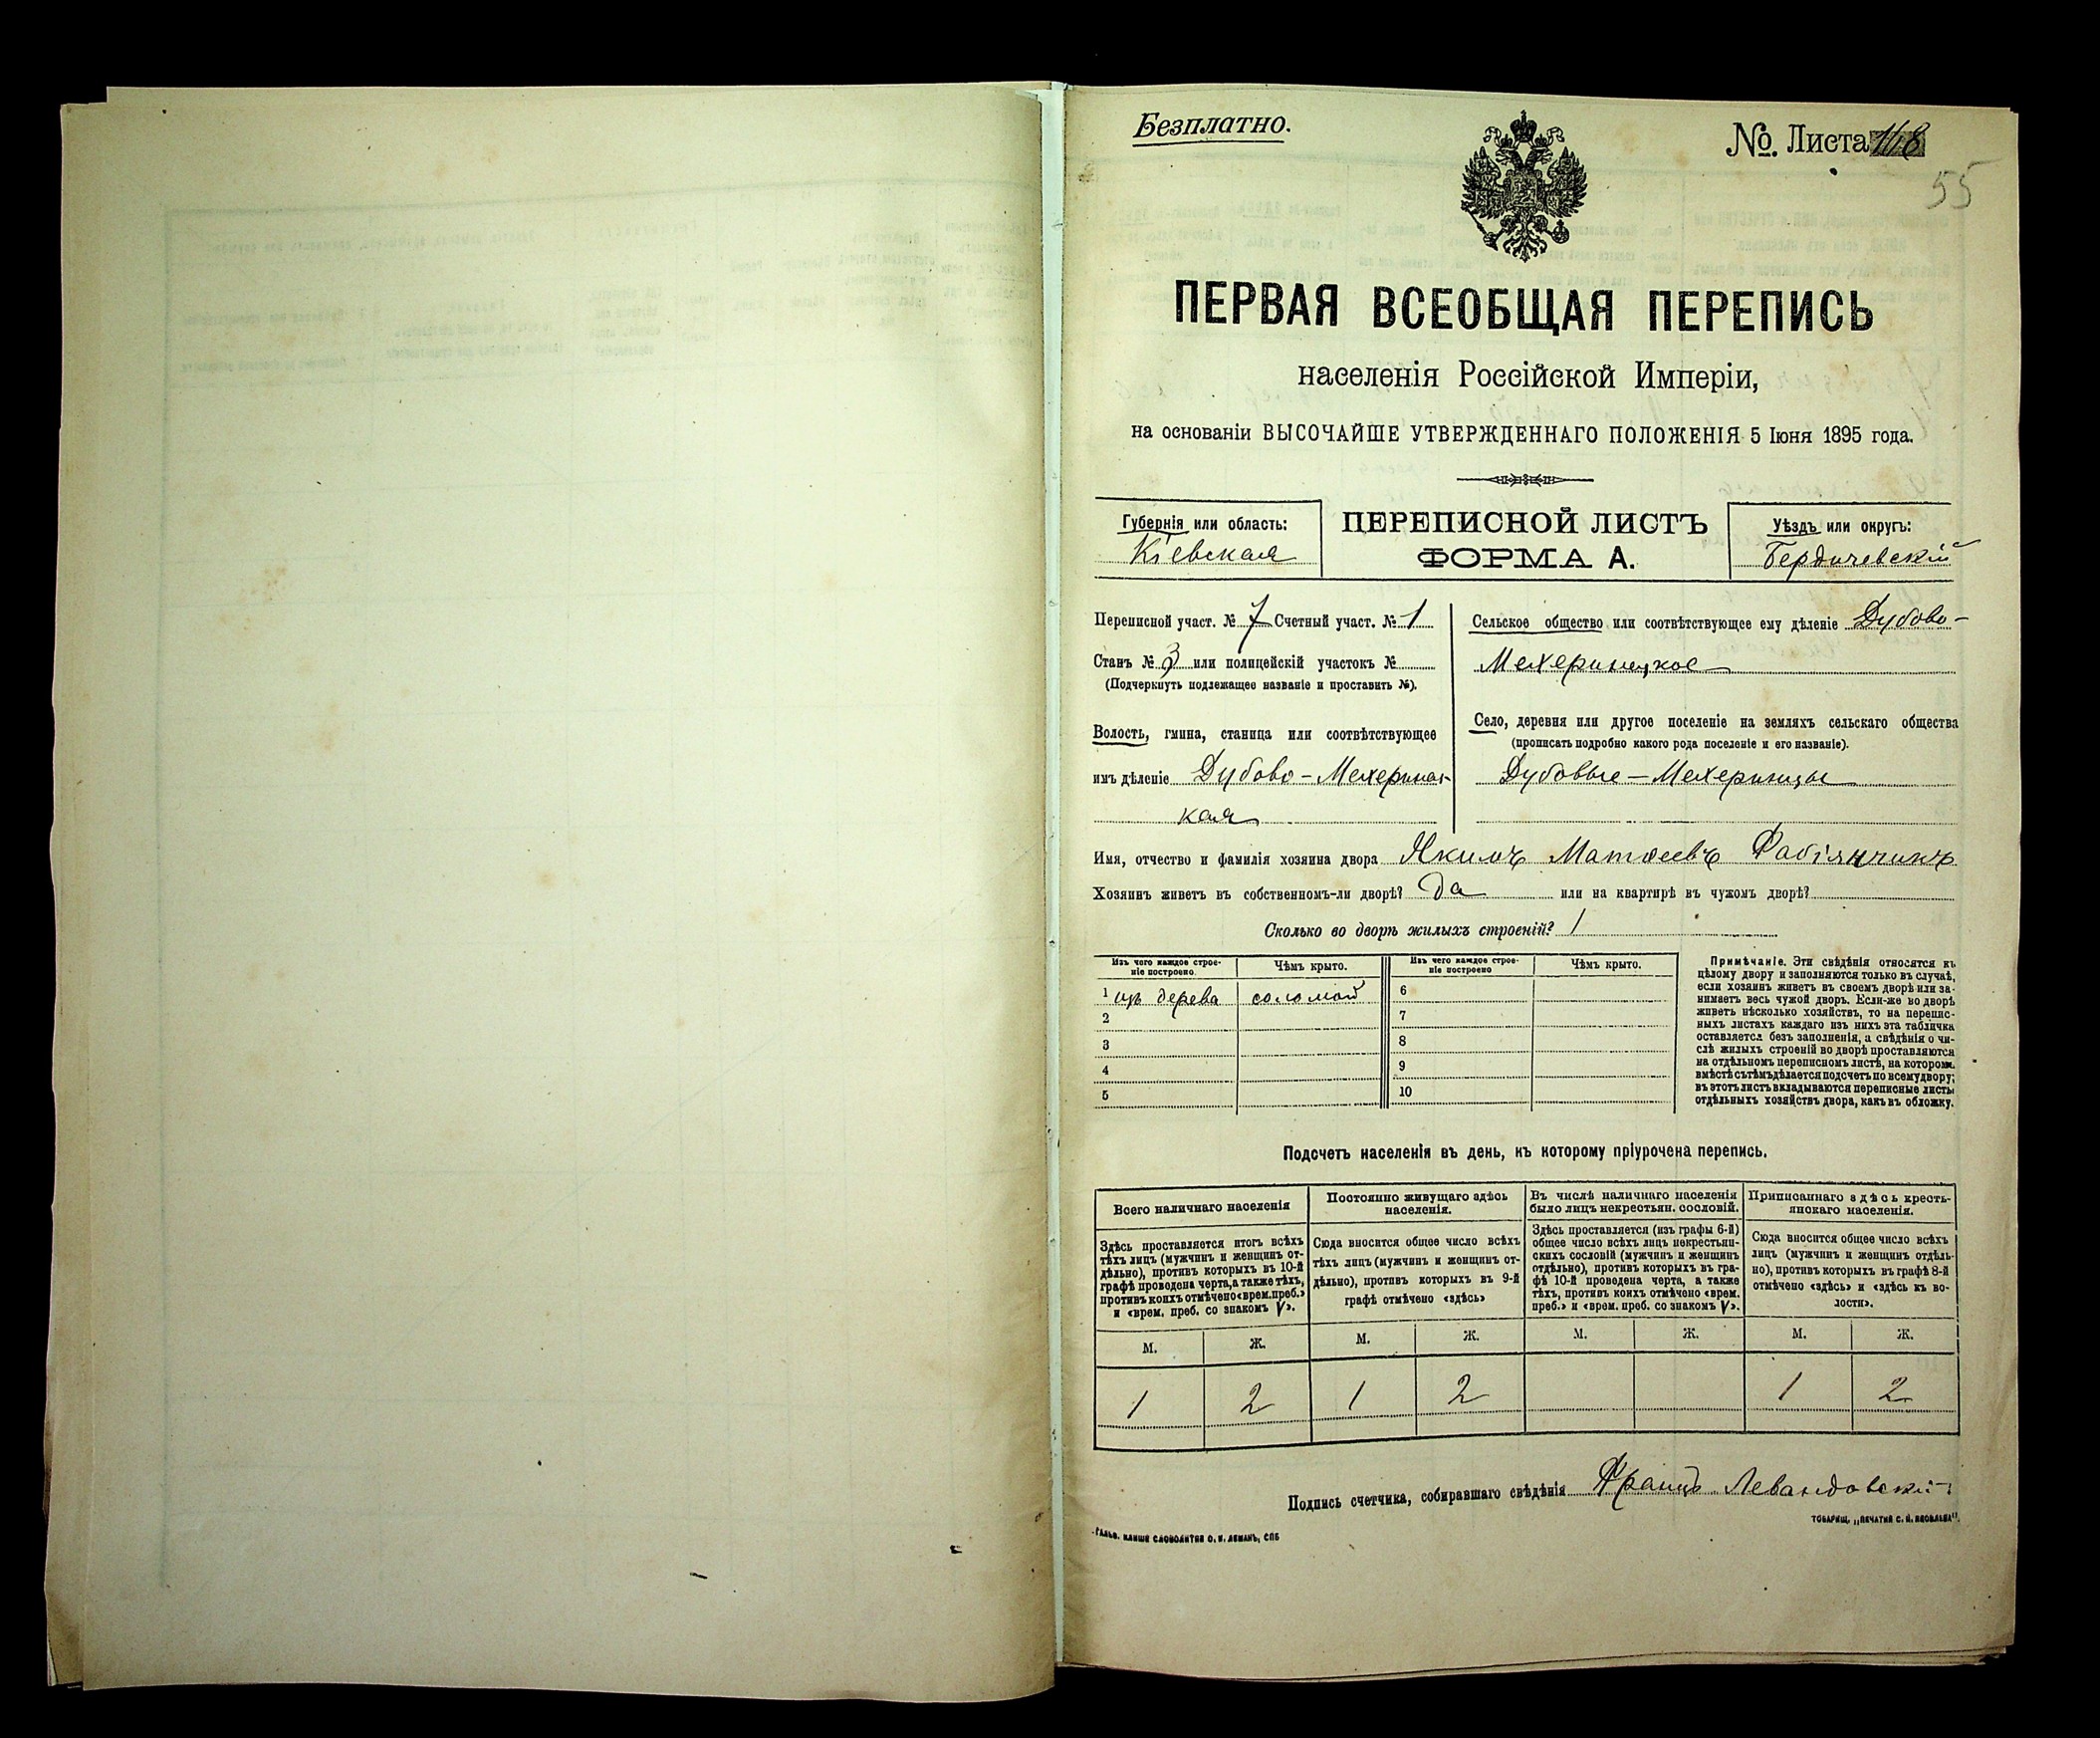 Безплатно.
№ Листа 118
55
ПЕРВАЯ ВСЕОБЩАЯ ПЕРЕПИСЬ
населенія Россійской Имперіи,
на основаніи ВЫСОЧАЙШЕ УТВЕРЖДЕННАГО ПОЛОЖЕНІЯ 5 Іюня 1895 года.
Губернія или область:
Кіевская
ПЕРЕПИСНОЙ ЛИСТЪ
ФОРМА А.
Уѣздъ или округъ:
Бердичевскій
Переписной участ. № 7 Счетный участ. № 1
Станъ № 3 или полицейскій участокъ №
(Подчеркнуть подлежащее названіе и проставить №).
Волость, гмина, станица или соотвѣтствующее
имъ дѣленіе Дубово-Межеринс-
кая
Сельское общество или соотвѣтствующее ему дѣленіе Дубово-
Межеринецкое
Село, деревня или другое поселеніе на земляхъ сельскаго общества
(прописать подробно какого рода поселеніе и его названіе).
Дубовые-Межеринцы
Имя, отчество и фамилія хозяина двора Якимъ Матѳеевъ Фабіянчикъ
Хозяинъ живетъ въ собственномъ-ли дворѣ? да или на квартирѣ въ чужомъ дворѣ?
Сколько во дворѣ жилыхъ строеній? 1
Изъ чего каждое строе-
ніе построено.
Чѣмъ крыто.
Изъ чего каждое строе-
ніе построено
Чѣмъ крыто.
1 изъ дерева соломой 6
2 7
3 8
4 9
5 10
Примѣчаніе. Эти свѣдѣнія относятся къ
цѣлому двору и заполняются только въ случаѣ,
если хозяинъ живетъ въ своемъ дворѣ или за-
нимаетъ весь чужой дворъ. Если-же во дворѣ
живетъ нѣсколько хозяйствъ, то на перепис-
ныхъ листахъ каждаго изъ нихъ эта табличка
оставляется безъ заполненія, а свѣдѣнія о чи-
слѣ жилыхъ строеній во дворѣ проставляются
на отдѣльномъ переписномъ листѣ, на которомъ
вмѣстѣ съ тѣмъ дѣлается подсчетъ по всему двору;
въ этотъ листъ вкладываются переписные листы
отдѣльныхъ хозяйствъ двора, какъ въ обложку.
Подсчетъ населенія въ день, къ которому пріурочена перепись.
Всего наличнаго населенія
Здѣсь проставляется итогъ всѣхъ
тѣхъ лицъ (мужчинъ и женщинъ от-
дѣльно), противъ которыхъ въ 10-й
графѣ проведена черта, а также тѣхъ,
противъ коихъ отмѣчено «врем. преб.»
и «врем. преб. со знакомъ V».
Постоянно живущаго здѣсь
населенія.
Сюда вносится общее число всѣхъ
тѣхъ лицъ (мужчинъ и женщинъ от-
дѣльно), противъ которыхъ въ 9-й
графѣ отмѣчено «здѣсь»
Въ числѣ наличнаго населенія
было лицъ некрестьян. сословій.
Здѣсь проставляется (изъ графы 6-й)
общее число всѣхъ лицъ некрестьян-
скихъ сословій (мужчинъ и женщинъ
отдѣльно), противъ которыхъ въ гра-
фѣ 10-й проведена черта, а также
тѣхъ, противъ коихъ отмѣчено «врем.
преб.» и «врем. преб. со знакомъ V».
Приписаннаго здѣсь кресть-
янскаго населенія.
Сюда вносится общее число всѣхъ
лицъ (мужчинъ и женщинъ отдѣль-
но), противъ которыхъ въ графѣ 8-й
отмѣчено «здѣсь» и «здѣсь къ во-
лости».
М. Ж. М. Ж. М. Ж. М. Ж.
1 2 1 2 1 2
Подпись счетчика, собиравшаго свѣдѣнія Францъ Левандовскій
Гальв. клише словолитня О. И. Леманъ, СПБ
Товарищ. „Печатня С. П. Яковлева".